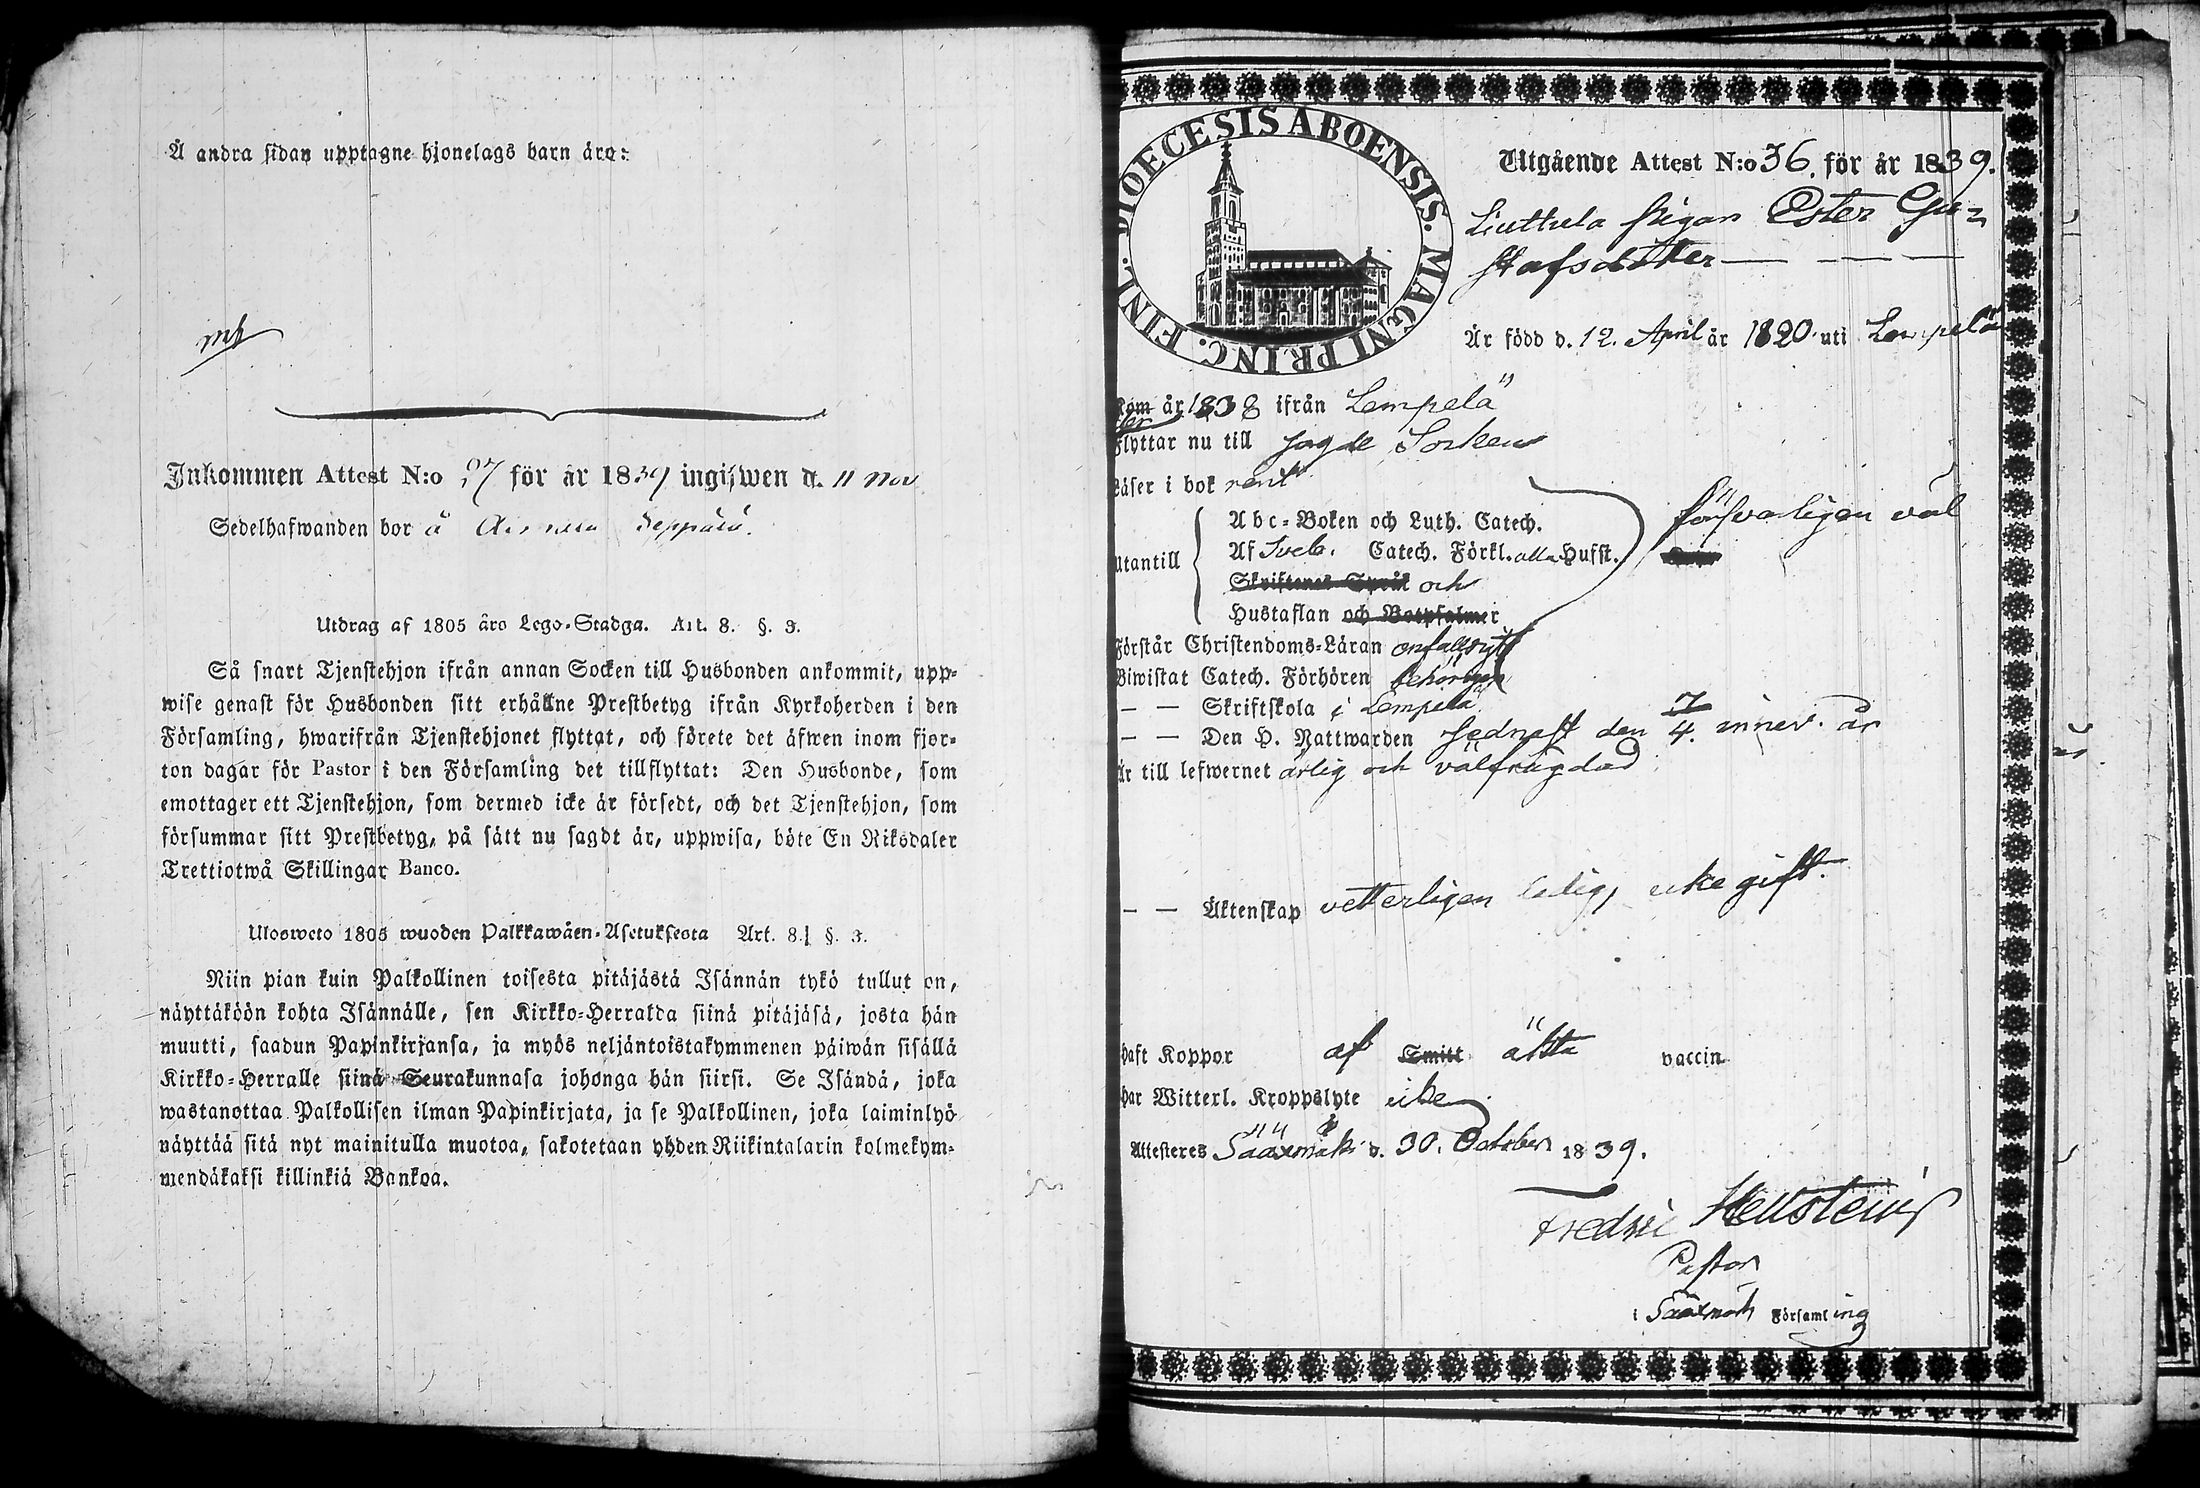 Å andra sidan upptagne hjonelags barn äro:
Inkommen Attest N:o 97 för år 1839 ingifwen d. 11 Nov
Sedelhafwanden bor å Seppälä.
Utdrag af 1805 års Lego-Stadga. Art. 8. §. 3.
Så snart Tjenstehjon ifrån annan Socken till Husbonden ankommit, upp-
wise genast för Husbonden sitt erhållne Prestbetyg ifrån Kyrkoherden i den
Församling, hwarifrån Tjenstehjonet flyttat, och förete det äfwen inom fjor-
ton dagar för Pastor i den Församling det tillflyttat: Den Husbonde, som
emottager ett Tjenstehjon, som dermed icke är försedt, och det Tjenstehjon, som
försummar sitt Prestbetyg, på sätt nu sagdt är, uppwisa, böte En Riksdaler
Trettiotwå Skillingar Banco.
Ulosweto 1805 wuoden Palkkawäen-Asetuksesta Art. 8. §. 3.
Niin pian kuin Palkollinen toisesta pitäjästä Isännän tykö tullut on,
näyttäköön kohta Isännälle, sen Kirkko-Herralda siinä pitäjäsä, josta hän
muutti, saadun Papinkirjansa, ja myös neljäntoistakymmenen päiwän sisällä
Kirkko-Herralle siinä Seurakunnasa johonga hän siirsi. Se Isändä, joka
wastanottaa Palkollisen ilman Papinkirjata, ja se Palkollinen, joka laiminlyö
näyttää sitä nyt mainitulla muotoa, sakotetaan yhden Riikintalarin kolmekym-
mendäkaksi killinkiä Bankoa.
DIOECESIS ABOENSIS. MAGNI PRINC. FINL.
Utgående Attest N:o 36. för år 1839.
Liuttula pigan Ester Gu-
stafsdotter
Är född d. 12. April år 1820 uti Lempelä
Kom år 1838 ifrån Lempelä
Flyttar nu till sagde Socken
Läser i bok rent
Abc-Boken och Luth. Catech. försvarligen väl
Utantill Af Sveb. Catech. Förkl. alla Hufst.
Skriftenes Språk och
Hustaflan och Botpsalmer
Förstår Christendoms-Läran enfaldigt
Biwistat Catech. Förhören behörigen
— — Skriftskola i Lempelä
— — Den H. Nattwarden sednast den 7/4. innev. år
Är till lefwernet ärlig och välfrägdad
— — Äktenskap vetterligen ledig, icke gift.
haft Koppor af Smitt äkta vaccin
har Witterl. Kroppslyte icke
Attesteres Sääxmäki d. 30. October 1839.
Fredric Hellstenius
Pastor
i Sääxmäki Församling